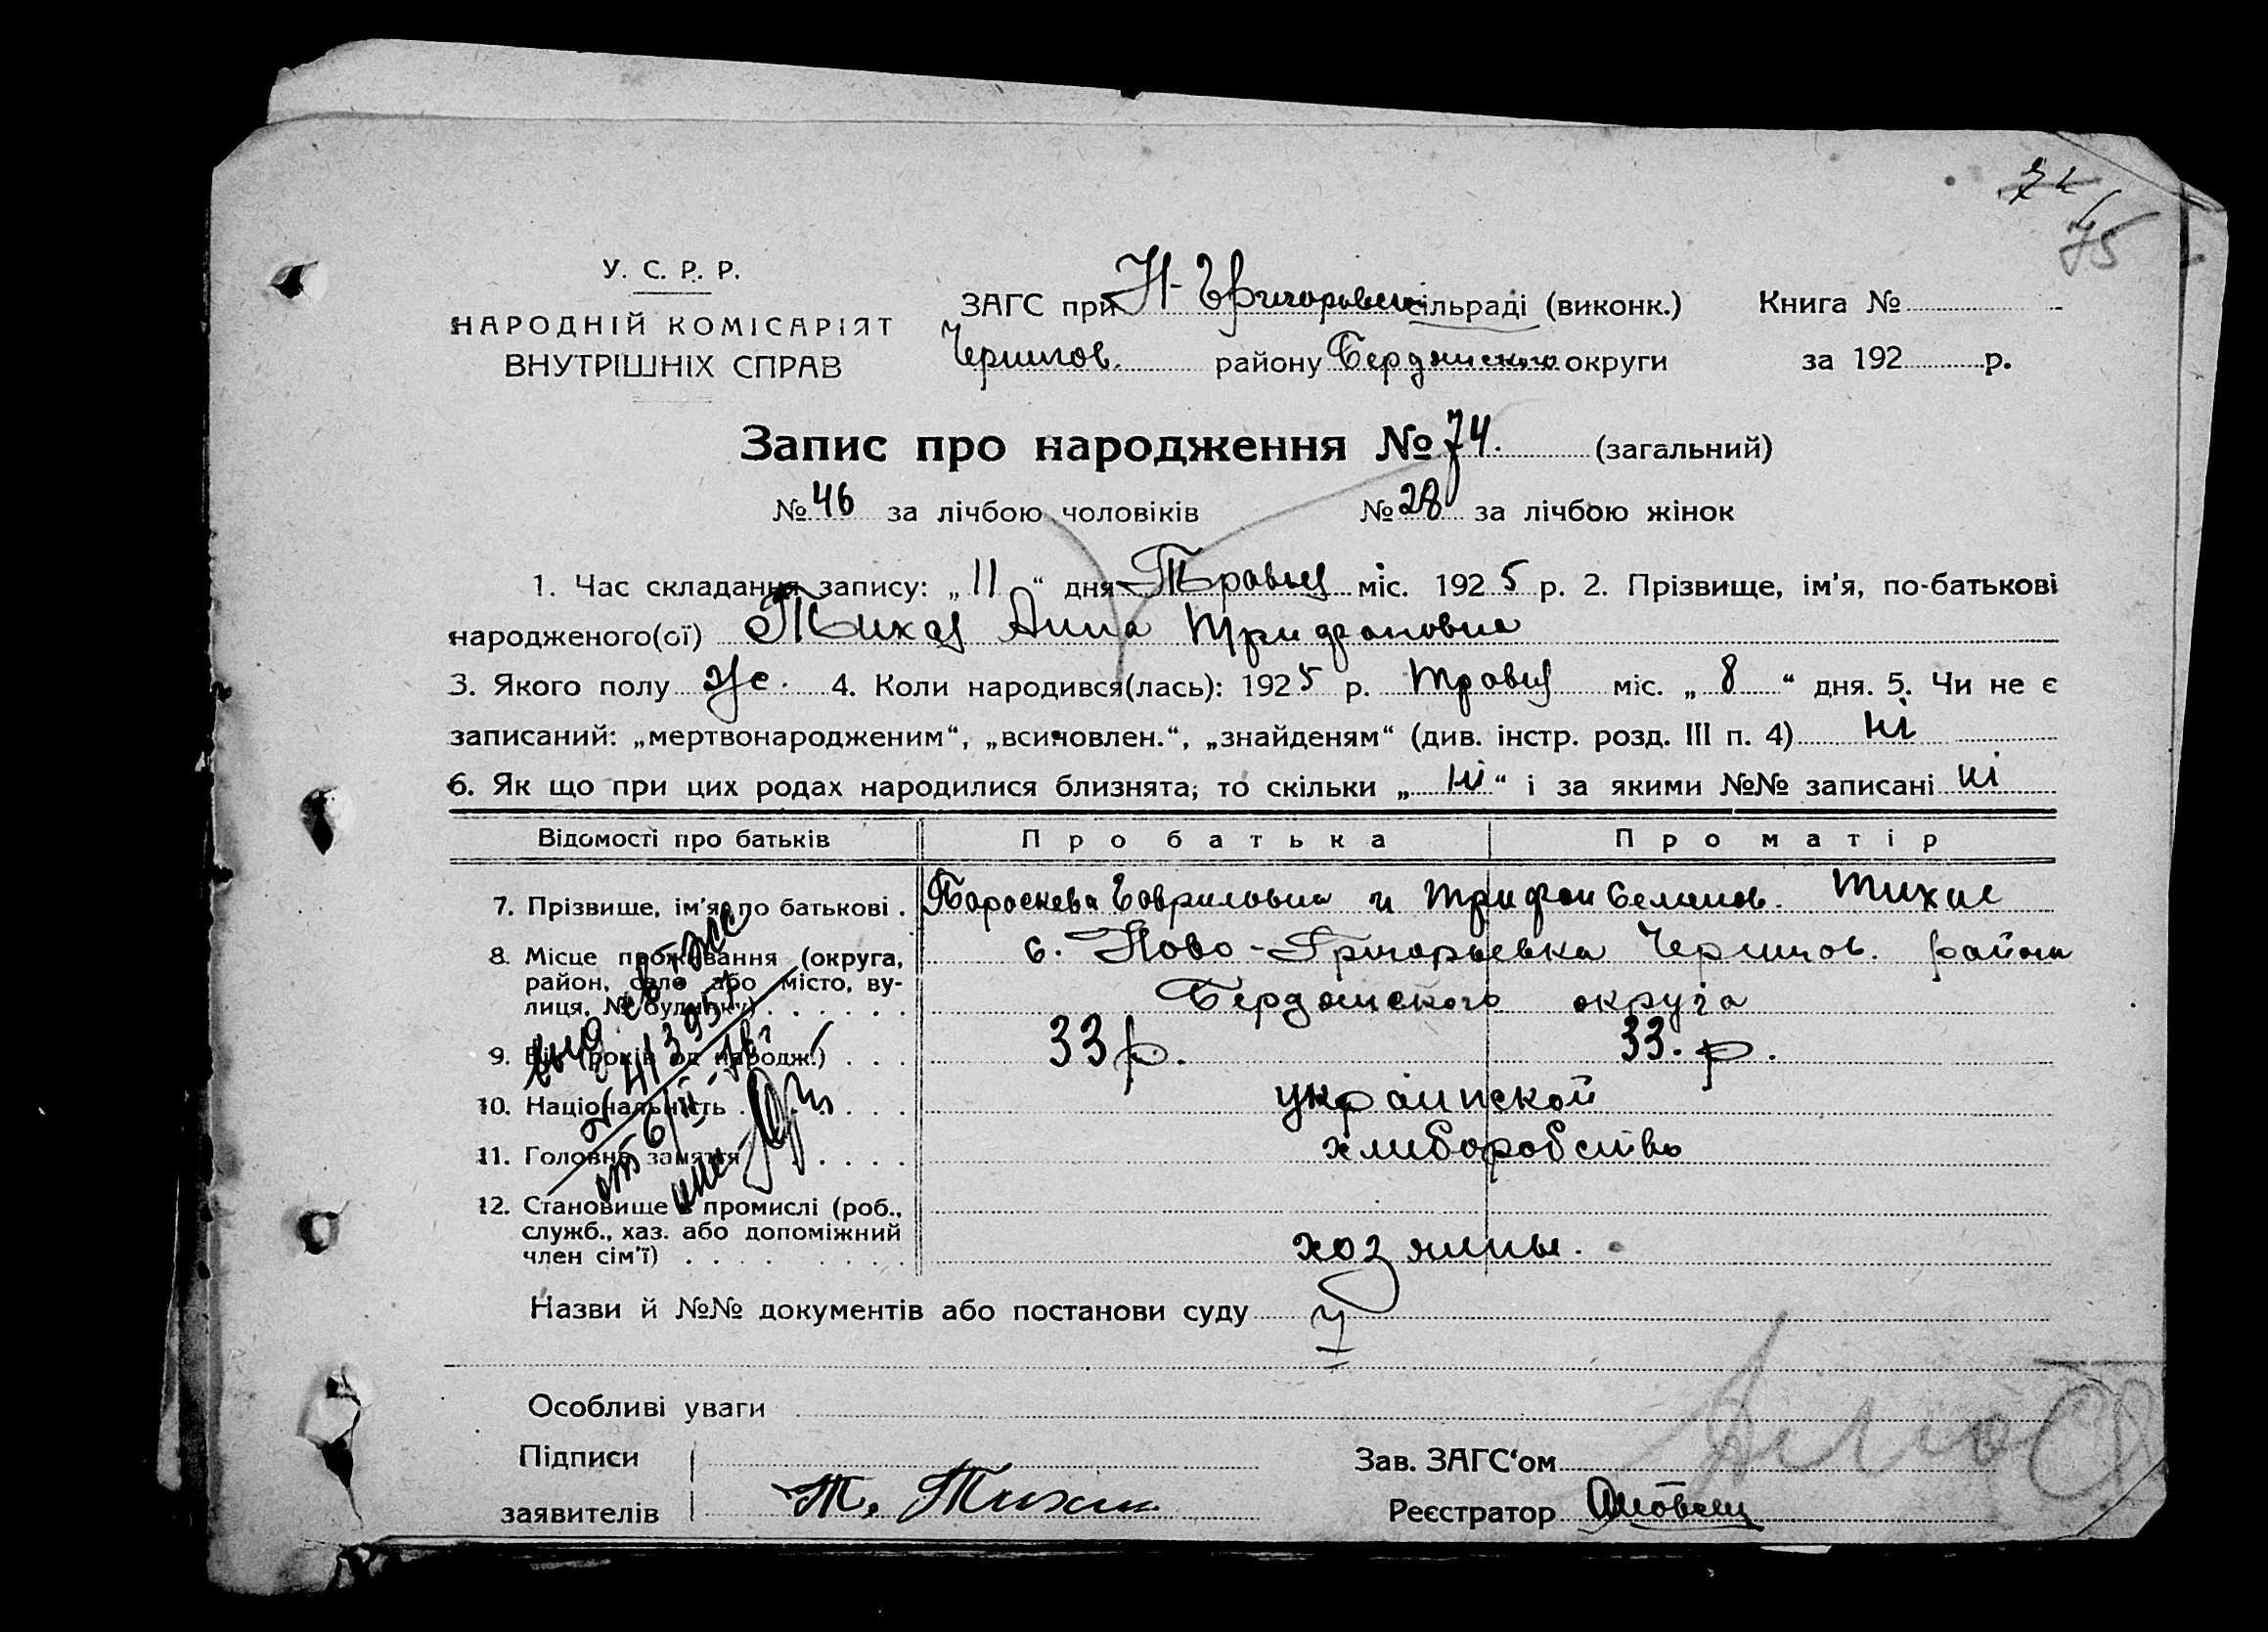 72/
75
У. С. Р. Р.
НАРОДНІЙ КОМІСАРІЯТ
ВНУТРІШНІХ СПРАВ
ЗАГС при Н-Григоровск сільраді (виконк.) Книга №
Чернигов. району Бердянского округи за 192 р.
Запис про народження № 74. (загальний)
№ 46 за лічбою чоловіків № 28 за лічбою жінок
1. Час складання запису: „ 11 “ дня Травня міс. 192 5 р. 2. Прізвище, ім'я, по-батькові
народженого(ої) Тихая Анна Трифановна
3. Якого полу же. 4. Коли народився(лась): 192 5 р. травня міс. „ 8 “ дня. 5. Чи не є
записаний: „мертвонародженим“, „всиновлен.“, „знайденям“ (див. інстр. розд. III п. 4) ні
6. Як що при цих родах народилися близнята; то скільки „ ні “ і за якими №№ записані ні
Відомості про батьків Про батька Про матір
7. Прізвище, ім'я, по батькові . Параскева Гавриловна и Трифон Семенов. Тихие
8. Місце проживання (округа, район, село або місто, вулиця, № будинку) . . . . . . с. Ново-Григорьевка Чернигов. района
Бердянского округа
9. Вік (років од народж.) . . . 33 р. 33. р.
10. Національність . . . . . . украинской
11. Головне заняття . . . . хлиборобство
12. Становище в промислі (роб.,
служб., хаз. або допоміжний
член сім'ї) . . . . . . . . хозяины.
Назви й №№ документів або постанови суду
Особливі уваги
Підписи
заявителів Т. Тихий
Зав. ЗАГС‘ом
Реєстратор